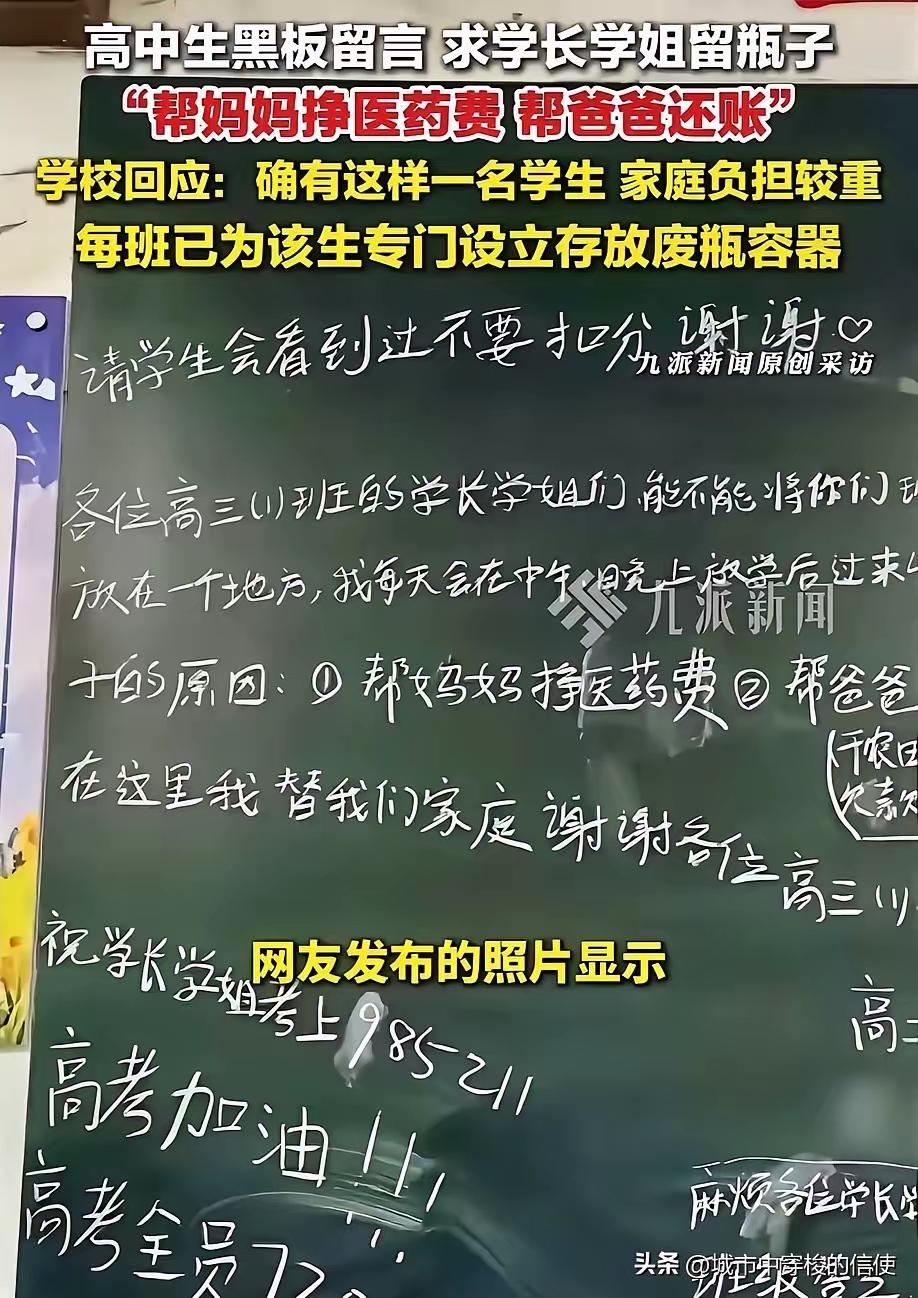 高中生黑板留言 求学长学姐留瓶子
“帮妈妈挣医药费 帮爸爸还账”
学校回应：确有这样一名学生 家庭负担较重
每班已为该生专门设立存放废瓶容器
请学生会看到过不要扣分 谢谢♡
九派新闻原创采访
各位高三(1)班的学长学姐们,能不能将你们
放在一个地方,我每天会在中午,晚上放学后过来
九派新闻
子的原因:①帮妈妈挣医药费②帮爸爸
(干农田
欠款
在这里我替我们家庭谢谢各位高三(1)
祝学长学姐考上985211
网友发布的照片显示
高
高考加油!!!
高考全员7
麻烦各位学长学
头条 @城市中穿梭的信使